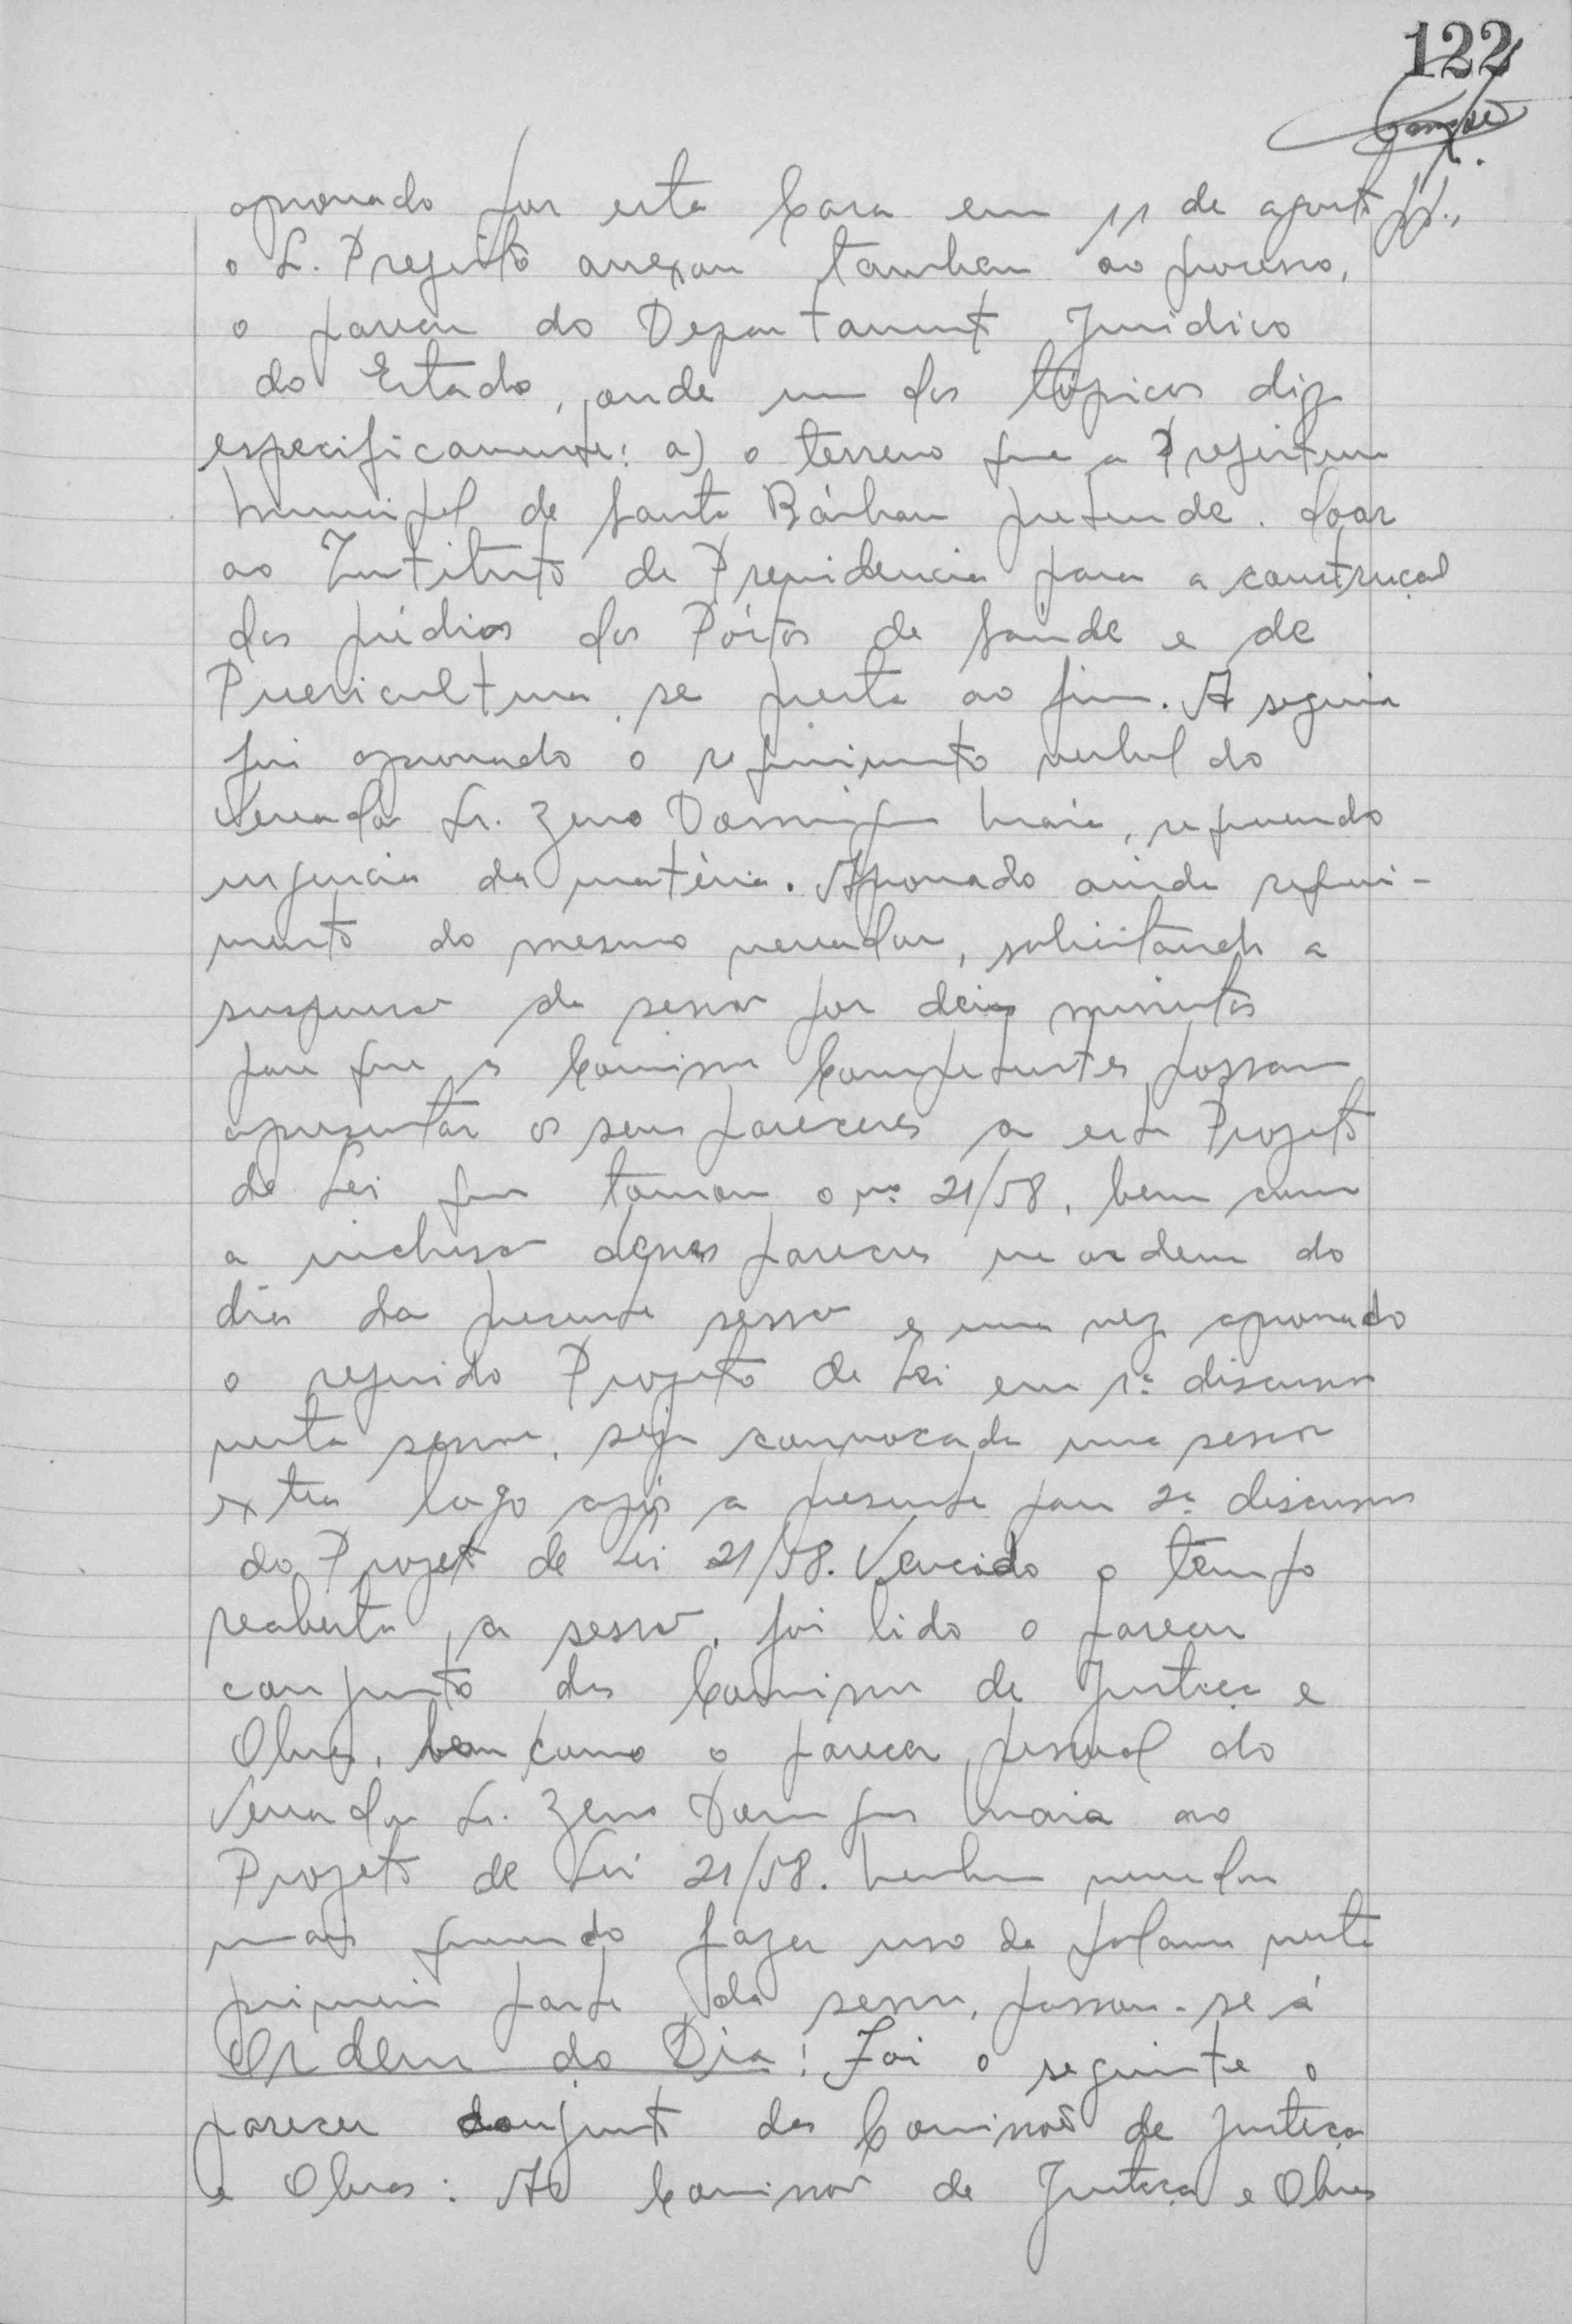 122
aprovado por esta Casa em 11 de agosto pp.,
o S. Prefeito anexou tambem ao processo,
o parecer do Departamento Juridico
do Estado, onde um dos tópicos diz
especificamente: a) o terreno que a Prefeitura
Municipal de Santa Bárbara pretende doar
ao Instituto de Previdencia para a construçaõ
dos prédios dos Póstos de Saúde e de
Puericultura, se presta ao fim. A seguir
foi aprovado o requerimento verbal do
Vereador Sr. Zeno Domingues Maia, requerendo
urgencia da matéria. Aprovado ainda requeri-
mento do mesmo vereador, solicitando a
suspensaõ da sessaõ por dois minutos
para que as Comissões Competentes possam
apresentar os seus pareceres a este Projeto
de Lei que tomou o nº 21/58, bem como
a inclusaõ desses pareceres na ordem do
dia da presente sessaõ e uma vez aprovado
o referido Projeto de Lei em 1ª discussaõ
nesta sessaõ, seja convocada uma sessaõ
extra logo após a presente para 2ª discussaõ
do Projeto de Lei 21/58. Vencido o tempo
reaberta a sessaõ, foi lido o parecer
conjunto das Comissões de Justiça e
Obras, bem como o parecer pessoal do
Vereador Sr. Zeno Domingues Maia ao
Projeto de Lei 21/58. Nenhum vereador
mais querendo fazer uso da palavra nesta
primeira parte da sessaõ, passou-se á
Ordem do Dia: Foi o seguinte o
parecer conjunto das Comissões de Justiça
e Obras: As Comissões de Justiça e Obras